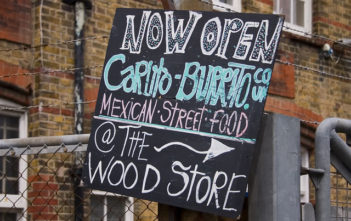 NOW OPEN
CARLITO-BURRITO.CO.UK
MEXICAN-STREET-FOOD
@ THE
WOOD STORE